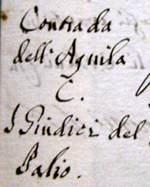 Contrada
dell'Aquila
C.
I Giudici del
Palio.